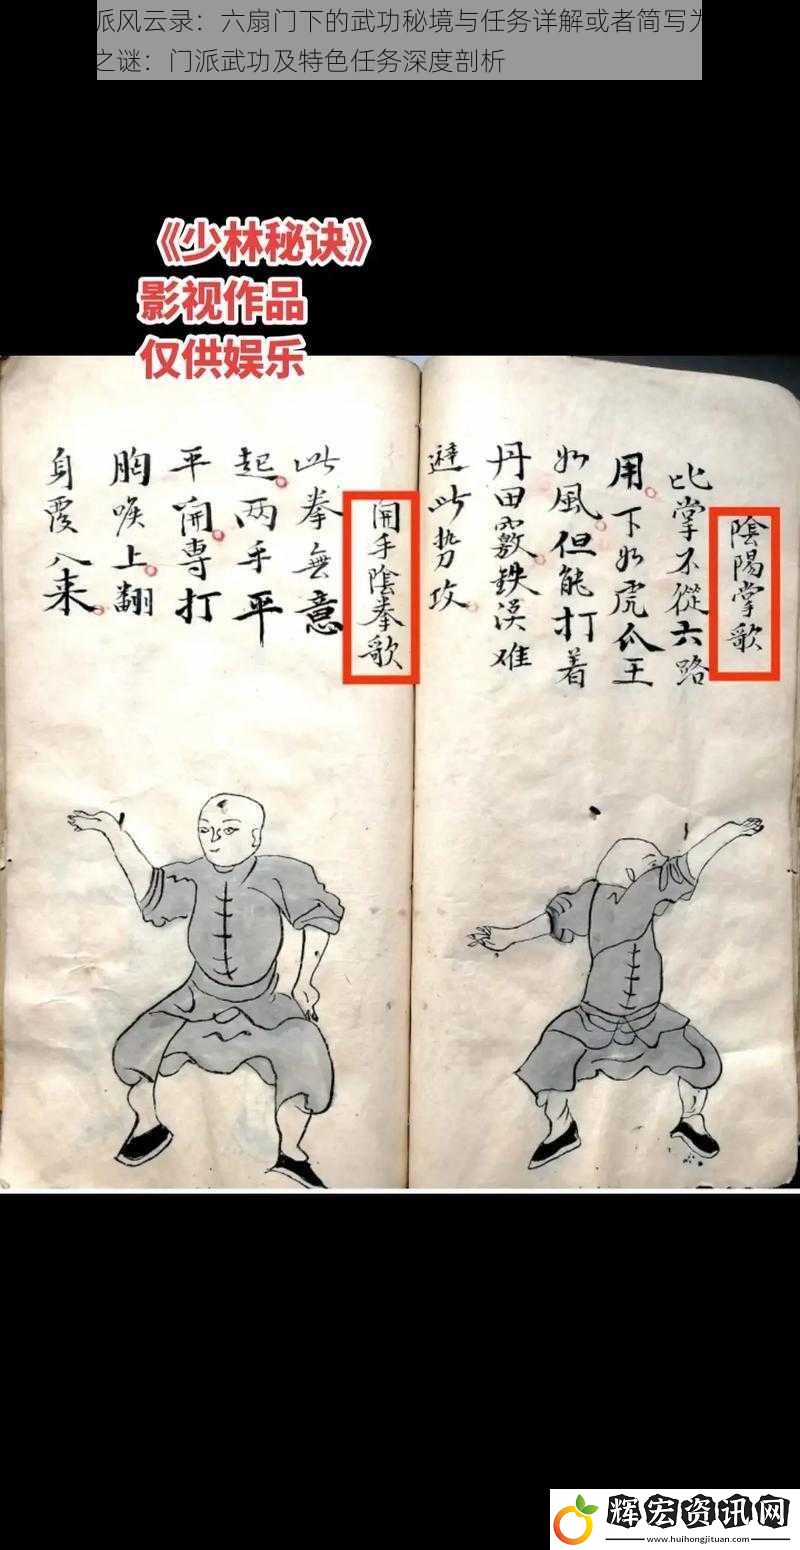 派风云录：六扇门下的武功秘境与任务详解或者简写为
之谜：门派武功及特色任务深度剖析
《少林秘诀》
影视作品
仅供娱乐
陰陽掌歌
比掌不從六路
用下如虎爪王
如風但能打着
丹田竅鉄漢难
避此势攻
開手陰拳歌
此拳無意
起两手平
平開專打
胸喉上翻
身覆入来
辉宏资讯网
www.huihongjituan.com